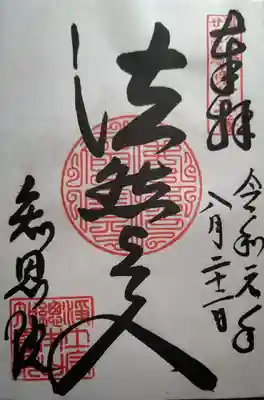 奉拝
令和元年
八月二十一日
法然上人
知恩院